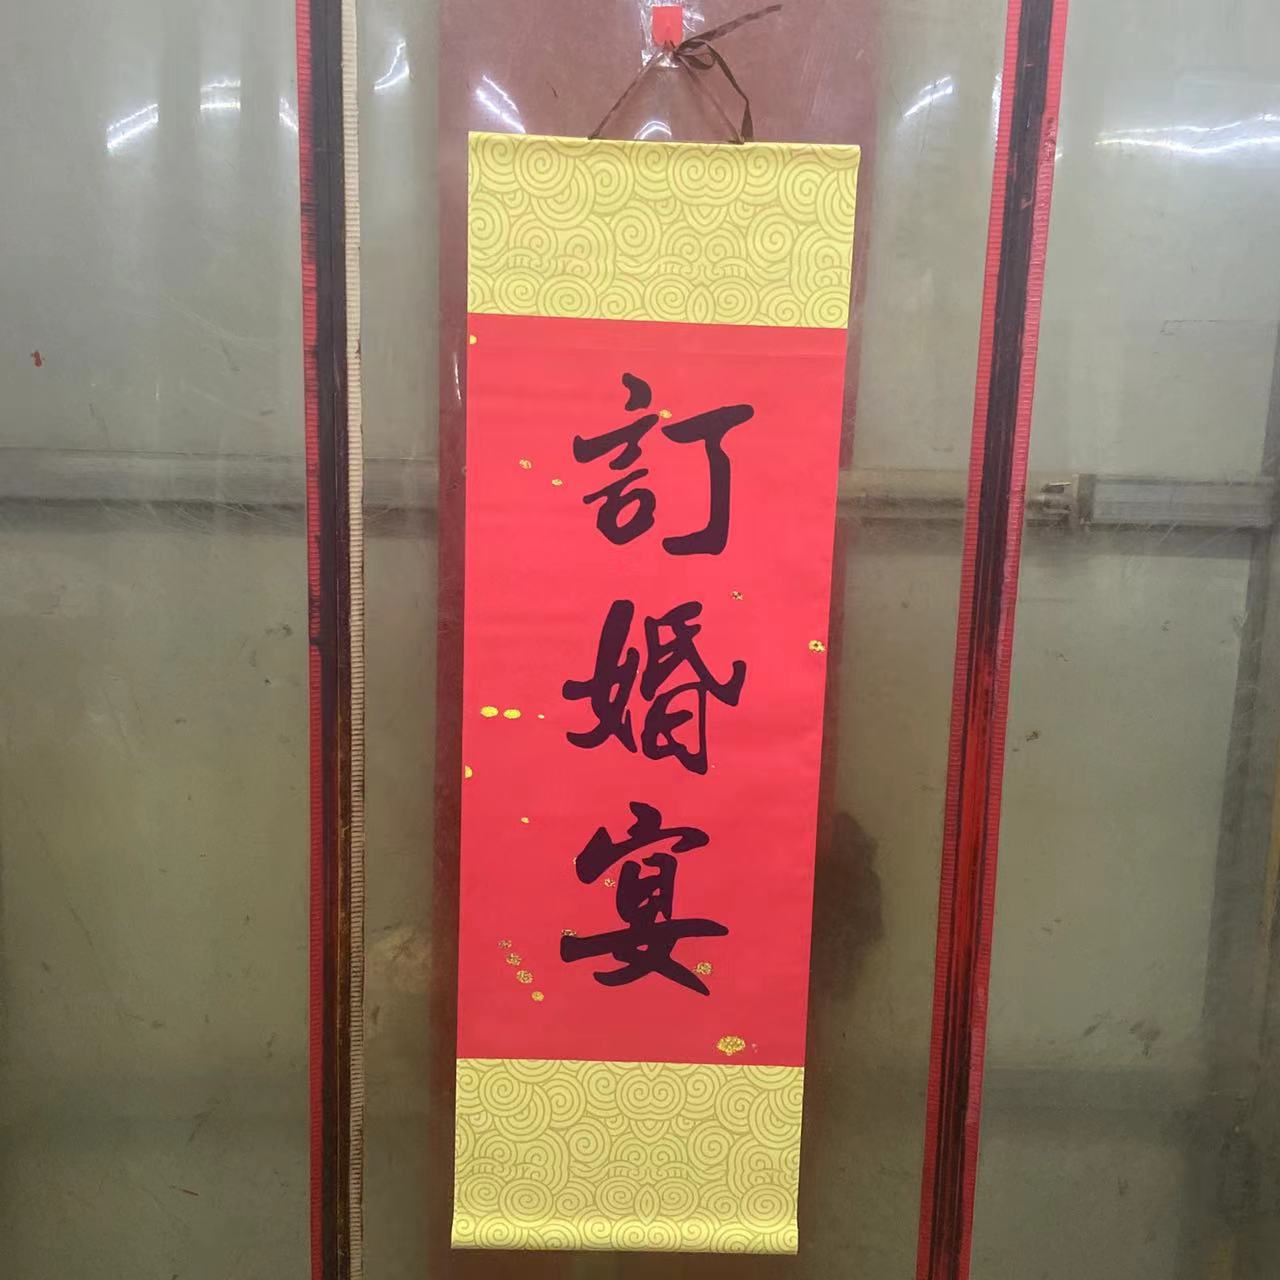 訂婚宴